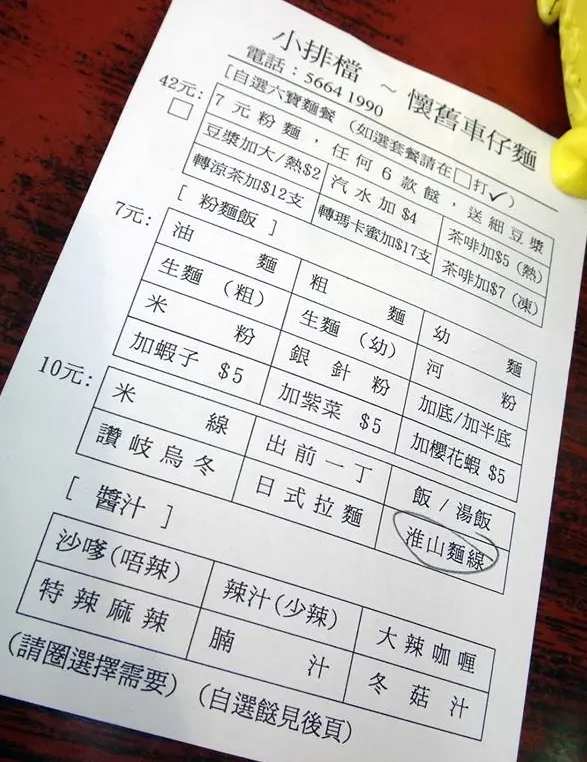 小排檔 ~ 懷舊車仔麵
電話：5664 1990
[自選六寶麵餐 (如選套餐請在□打✓)
42元： 7元粉麵，任何6款餸，送細豆漿
□ 豆漿加大/熱$2 汽水加$4 茶啡加$5 (熱)
轉涼茶加$12支 轉瑪卡蜜加$17支 茶啡加$7 (凍)
[ 粉麵飯 ]
7元： 油麵 粗麵 幼麵
生麵 (粗) 生麵 (幼) 河粉
米粉 銀針粉 加底/加半底
加蝦子 $5 加紫菜 $5 加櫻花蝦 $5
10元： 米線 出前一丁 飯 / 湯飯
讚岐烏冬 日式拉麵 淮山麵線
[ 醬汁 ]
沙嗲(唔辣) 辣汁(少辣) 大辣咖喱
特辣麻辣 腩汁 冬菇汁
(請圈選擇需要) (自選餸見後頁)